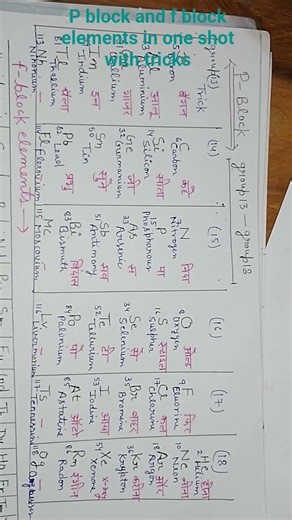 P block and f block
elements in one shot
with tricks
P-Block
group 13 group 18
group(13) Trick
Boron बैंगन
Aluminium आलू
Gallium गाजर
In
Indium इन
81 Tl
Thallium थैला
113 Nh
Nihonium
(14)
6 C
Carbon कहे
14 Si
Silicon सीता
32 Ge
Germanium जी
50 Sn
Tin सुन
82 Pb
Lead प्रभु
114 Fl
Flerovium
(15)
7 N
Nitrogen
15 P
Phosphorous पा
33 As
Arsenic स
51 Sb
Antimony सब
83 Bi
Bismuth
115 Mc
Moscovium
(16)
8 O
Oxygen ओल्ड
16 S
Sulphur स्टाइल
34 Se
Selenium से
52 Te
Tellurium टी
84 Po
Polonium पो
116 Lv
Livermorium
(17)
9 F
Fluorine फिर
17 Cl
Chlorine कल
35 Br
Bromine बाहर
53 I
Iodine आना
85 At
Astatine आंटी
117 Ts
Tennessine
(18)
2 He
Helium हीना
10 Ne
Neon नीना
18 Ar
Argon और
36 Kr
Krypton करीना
54 Xe
Xenone x-ray
86 Rn
Radon रंगीन
118 Og
f-block elements